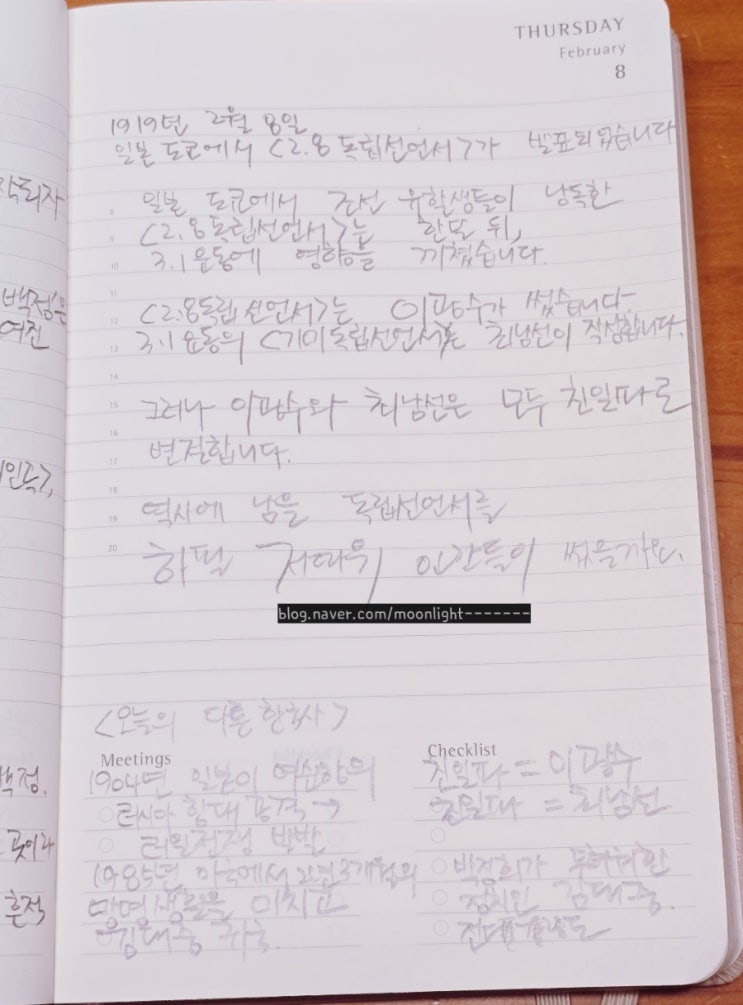 THURSDAY
February
8
1919년 2월 8일
일본 도쿄에서 <2.8 독립선언서>가 발표되었습니다
일본 도쿄에서 조선 유학생들이 낭독한
<2.8독립선언서>는 한달 뒤,
3.1운동에 영향을 끼쳤습니다.
<2.8독립선언서>는 이광수가 썼습니다
3.1운동의 <기미독립선언서>는 최남선이 작성합니다.
그러나 이광수와 최남선은 모두 친일파로
변절합니다.
역사에 남을 독립선언서를
하필 저따위 인간들이 썼을까요.
blog.naver.com/moonlight-------
<오늘의 다른 한국사>
Meetings
1904년 일본이 여순항의
러시아 함대 공격→
러일전쟁 발발
1985년 미국에서 2년3개월의
망명생활을 마치고
김대중 귀국.
Checklist
친일파 = 이광수
친일파 = 최남선
박정희가 두려워한
정치인 김대중.
8
9
10
11
12
13
14
15
16
17
18
19
20
작퇴자
백정은
여진
백정.
곳이라
흔적